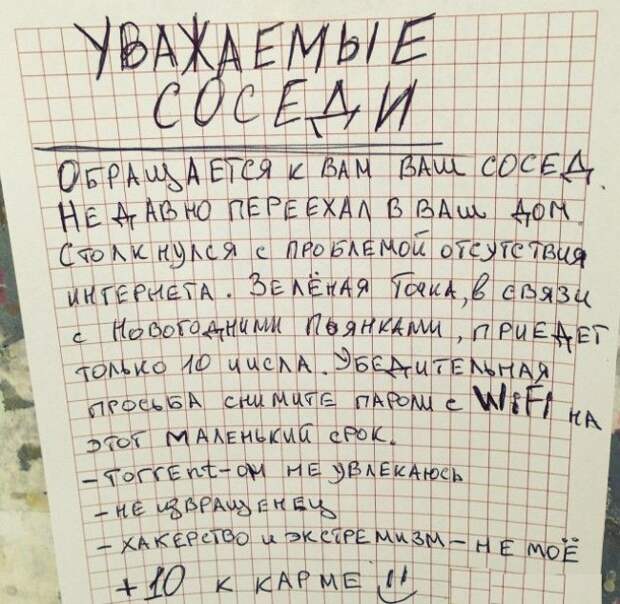 УВАЖАЕМЫЕ
СОСЕДИ
ОБРАЩАЕТСЯ К ВАМ ВАШ СОСЕД.
НЕДАВНО ПЕРЕЕХАЛ В ВАШ ДОМ.
СТОЛКНУЛСЯ С ПРОБЛЕМОЙ ОТСУТСТВИЯ
ИНТЕРНЕТА. ЗЕЛЁНАЯ ТОЧКА, В СВЯЗИ
С НОВОГОДНИМИ ПЬЯНКАМИ, ПРИЕДЕТ
ТОЛЬКО 10 ЧИСЛА. УБЕДИТЕЛЬНАЯ
ПРОСЬБА СНИМИТЕ ПАРОЛИ С WiFi НА
ЭТОТ МАЛЕНЬКИЙ СРОК.
- ТОrrent-ОМ НЕ УВЛЕКАЮСЬ
- НЕ ИЗВРАЩЕНЕЦ
- ХАКЕРСТВО И ЭКСТРЕМИЗМ - НЕ МОЁ
+10 К КАРМЕ